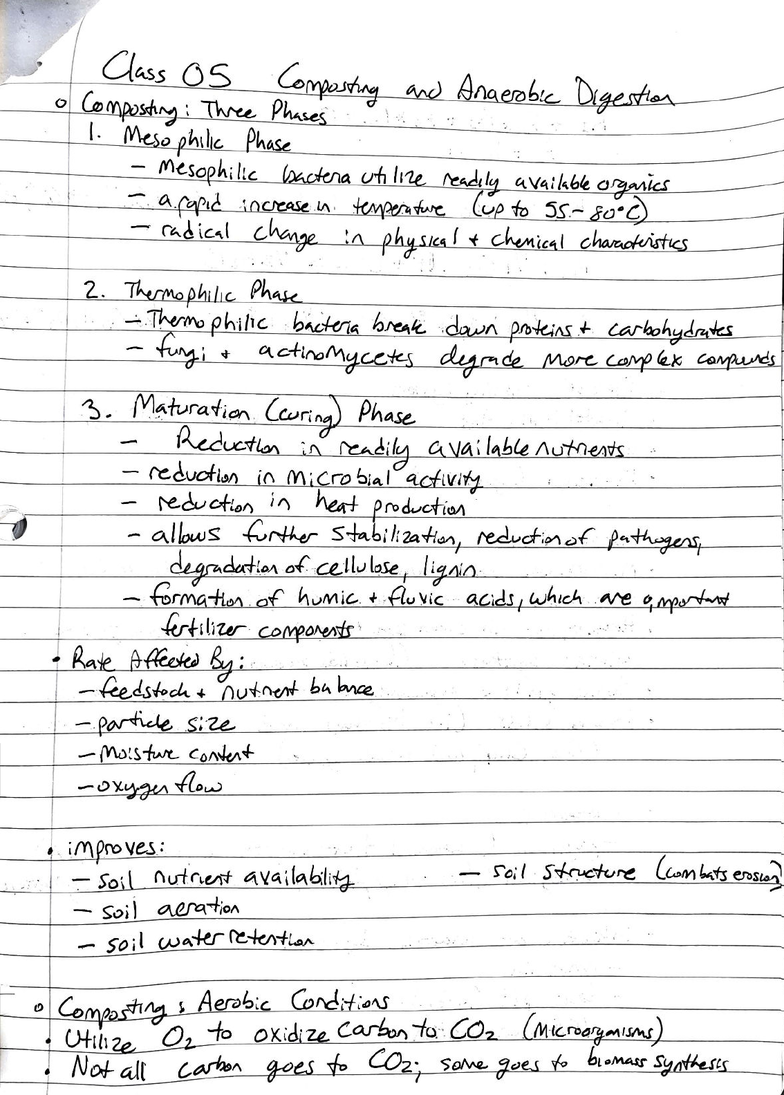 Class 05 Composting and Anaerobic Digestion
o Composting: Three Phases
1. Mesophilic Phase
- Mesophilic bacteria utilize readily available organics
- a rapid increase in temperature (up to 55-80°C)
- radical change in physical + chemical characteristics
2. Thermophilic Phase
- Thermophilic bacteria break down proteins + carbohydrates
- fungi + actinomycetes degrade more complex compounds
3. Maturation (curing) Phase
- Reduction in readily available nutrients
- reduction in microbial activity
- reduction in heat production
- allows further stabilization, reduction of pathogens,
degradation of cellulose, lignin
- formation of humic + fluvic acids, which are important
fertilizer components
• Rate Affected By:
- feedstock + nutrient balance
- particle size
- Moisture content
- oxygen flow
• improves:
- soil nutrient availability - soil structure (combats erosion)
- soil aeration
- soil water retention
o Composting: Aerobic Conditions
• Utilize O₂ to oxidize carbon to CO₂ (Microorganisms)
• Not all carbon goes to CO₂; some goes to biomass synthesis